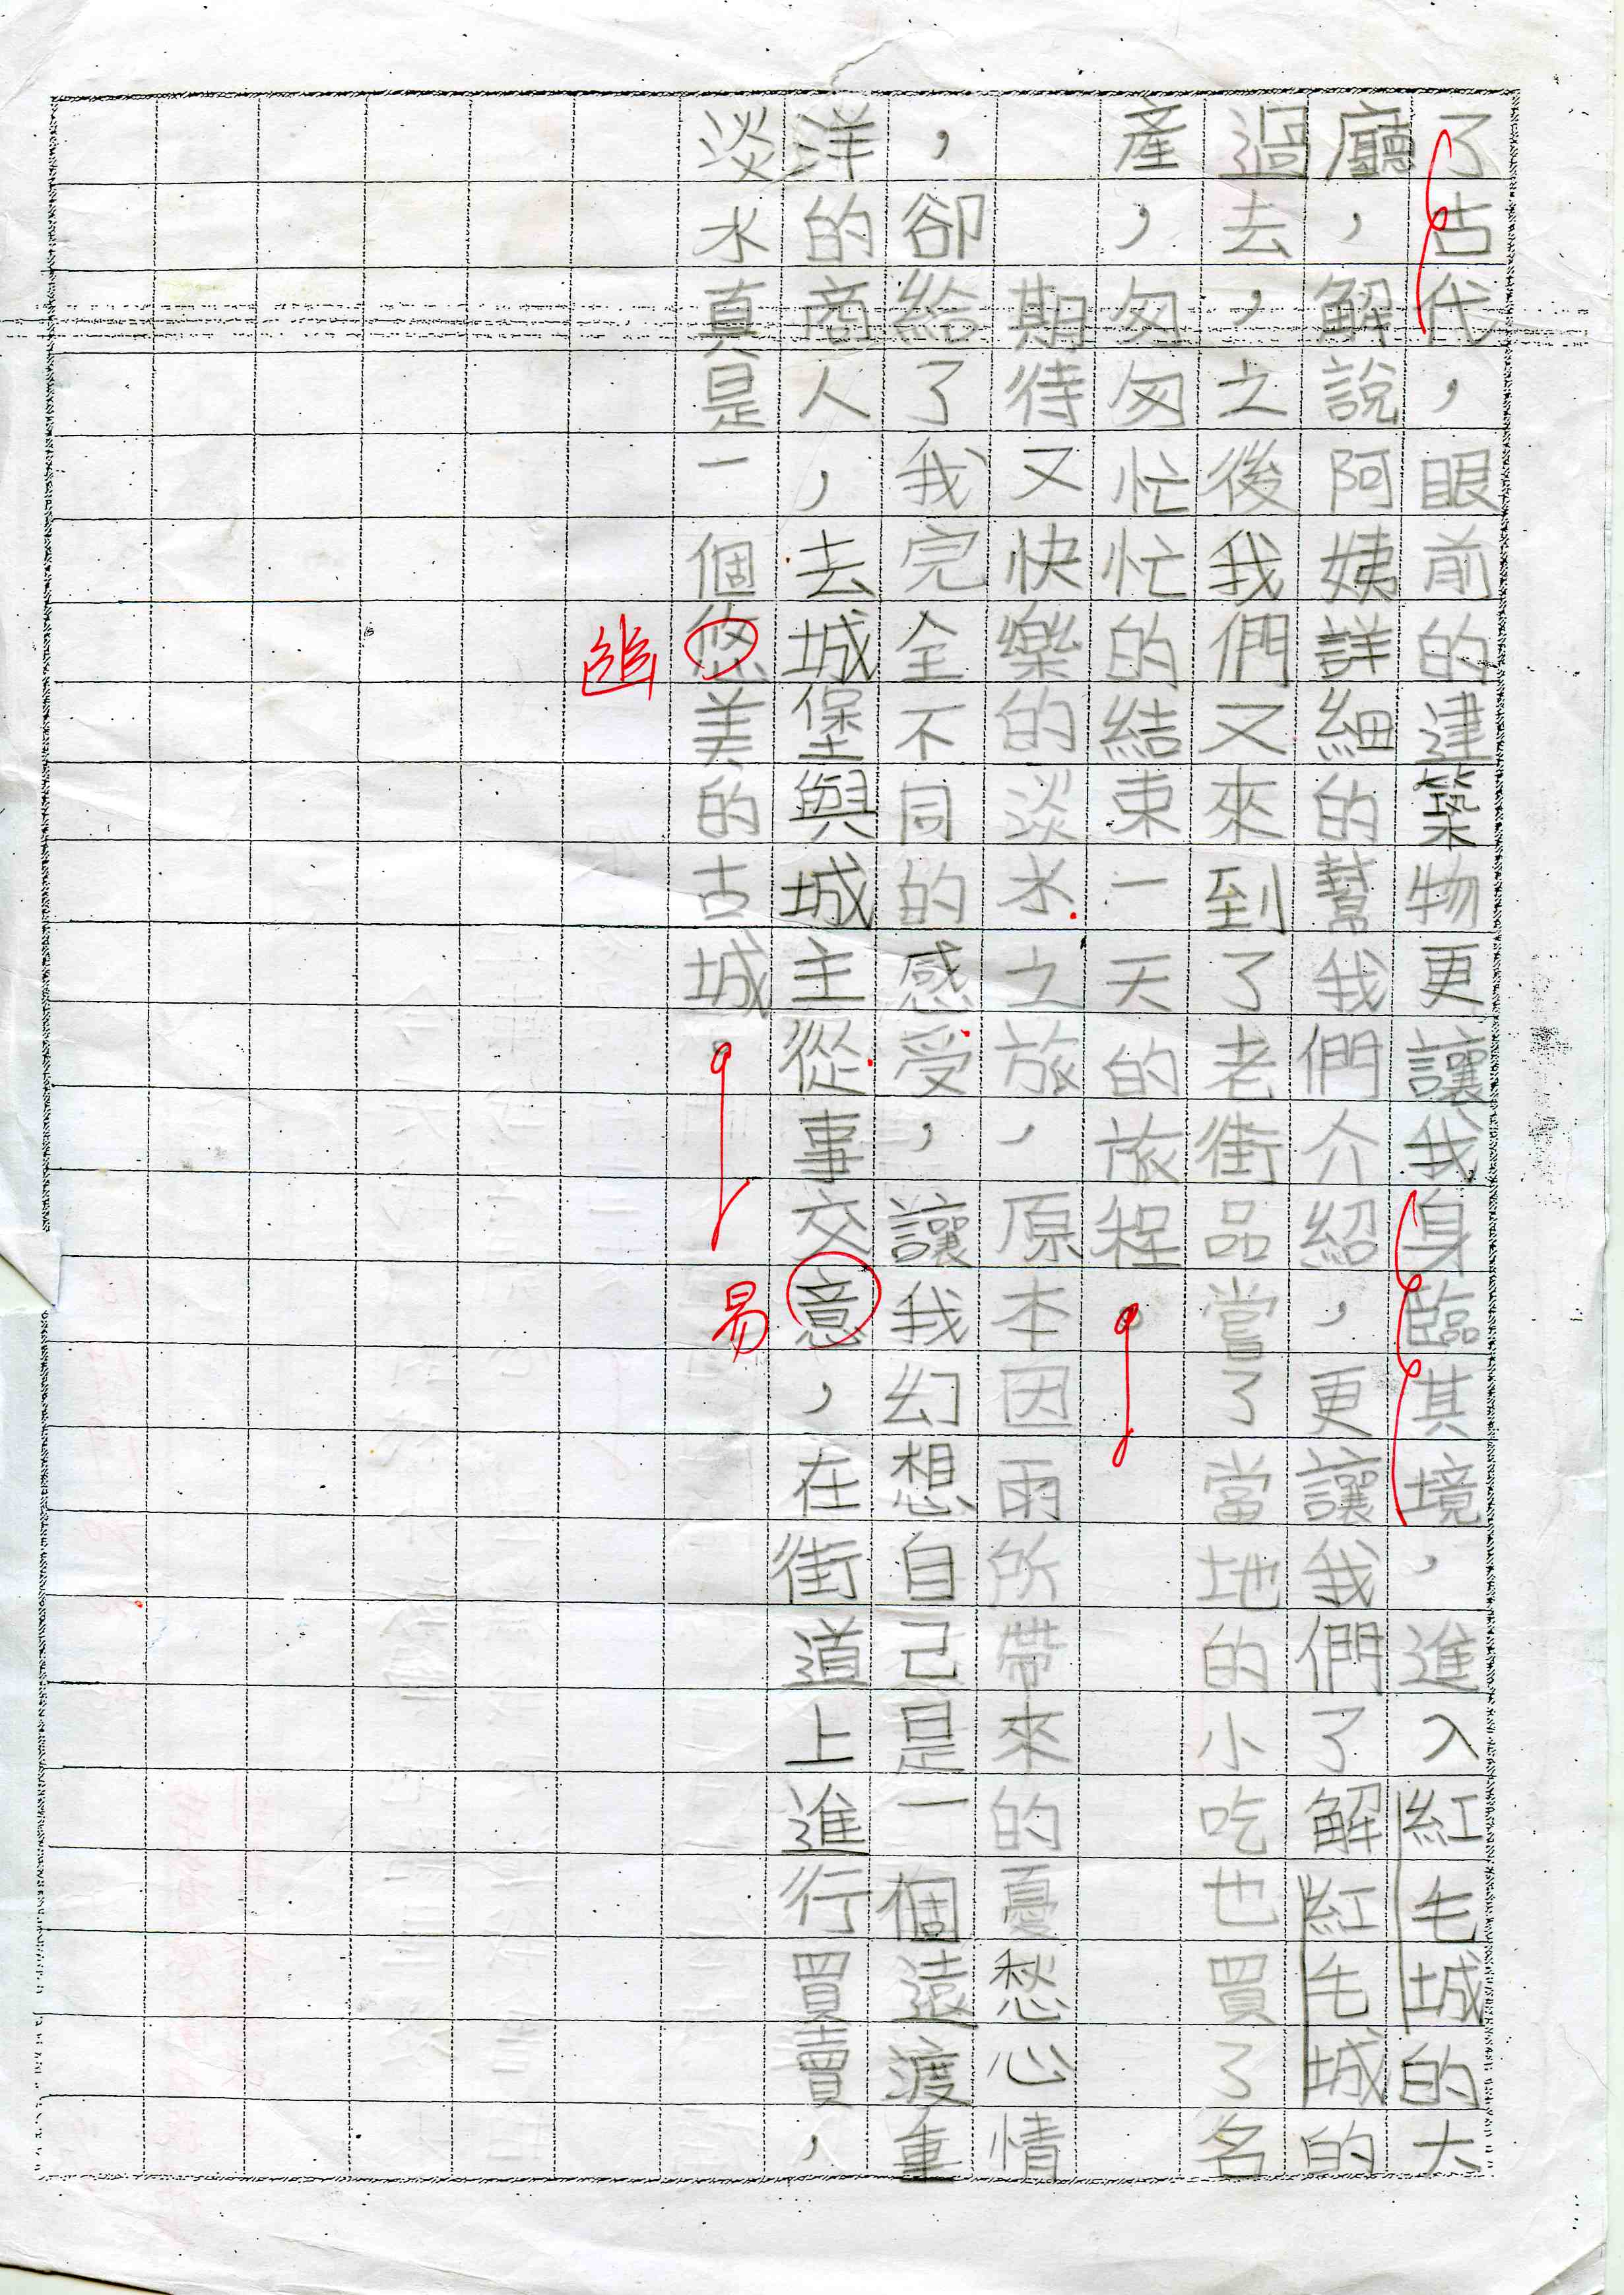 了古代，眼前的建築物更讓我身臨其境，進入紅毛城的大
廳，解說阿姨詳細的幫我們介紹，更讓我們了解紅毛城的
過去，之後我們又來到了老街品嘗了當地的小吃也買了名
產，匆匆忙忙的結束一天的旅程。
期待又快樂的淡水之旅，原本因雨所帶來的憂愁心情
，卻給了我完全不同的感受，讓我幻想自己是一個遠渡重
洋的商人，去城堡與城主從事交意，在街道上進行買賣，
易
淡水真是一個悠美的古城。
幽